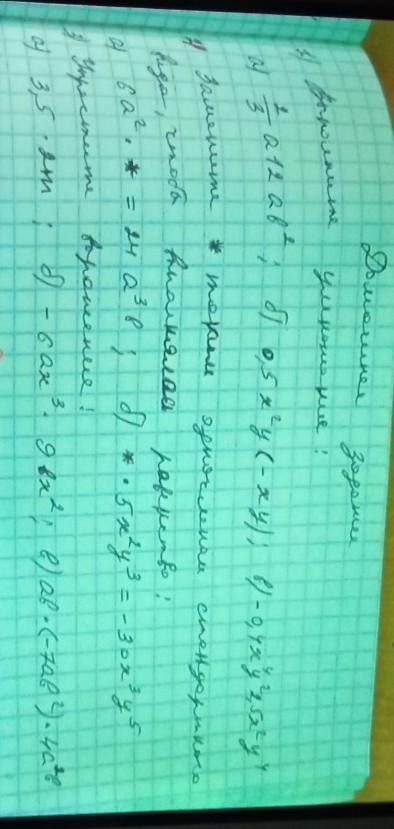 Домашнее задание
1) Выполните умножение:
а) 1/3 a 12 ab²; б) 0,5x²y(-xy); в) -0,4x⁴y² 2,5x²y⁴
2) Замените * таким одночленом стандартного
вида, чтобы выполнялась равенство:
а) 6a² · * = 24a³b; б) * · 5x²y³ = -30x³y⁵
3) Упростите выражения:
а) 3,5 · 2m; б) -6ax³ · 9bx²; в) ab · (-7ab²) · 4a²b